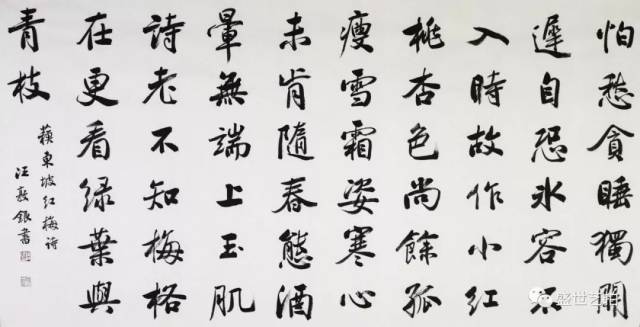 怕愁貪睡獨開
遲自恐冰容不
入時故作小紅
桃杏色尚餘孤
瘦雪霜姿寒心
未肯隨春態酒
暈無端上玉肌
詩老不知梅格
在更看绿葉與
青枝
蘇東坡红梅詩
汪敦銀書
盛世艺